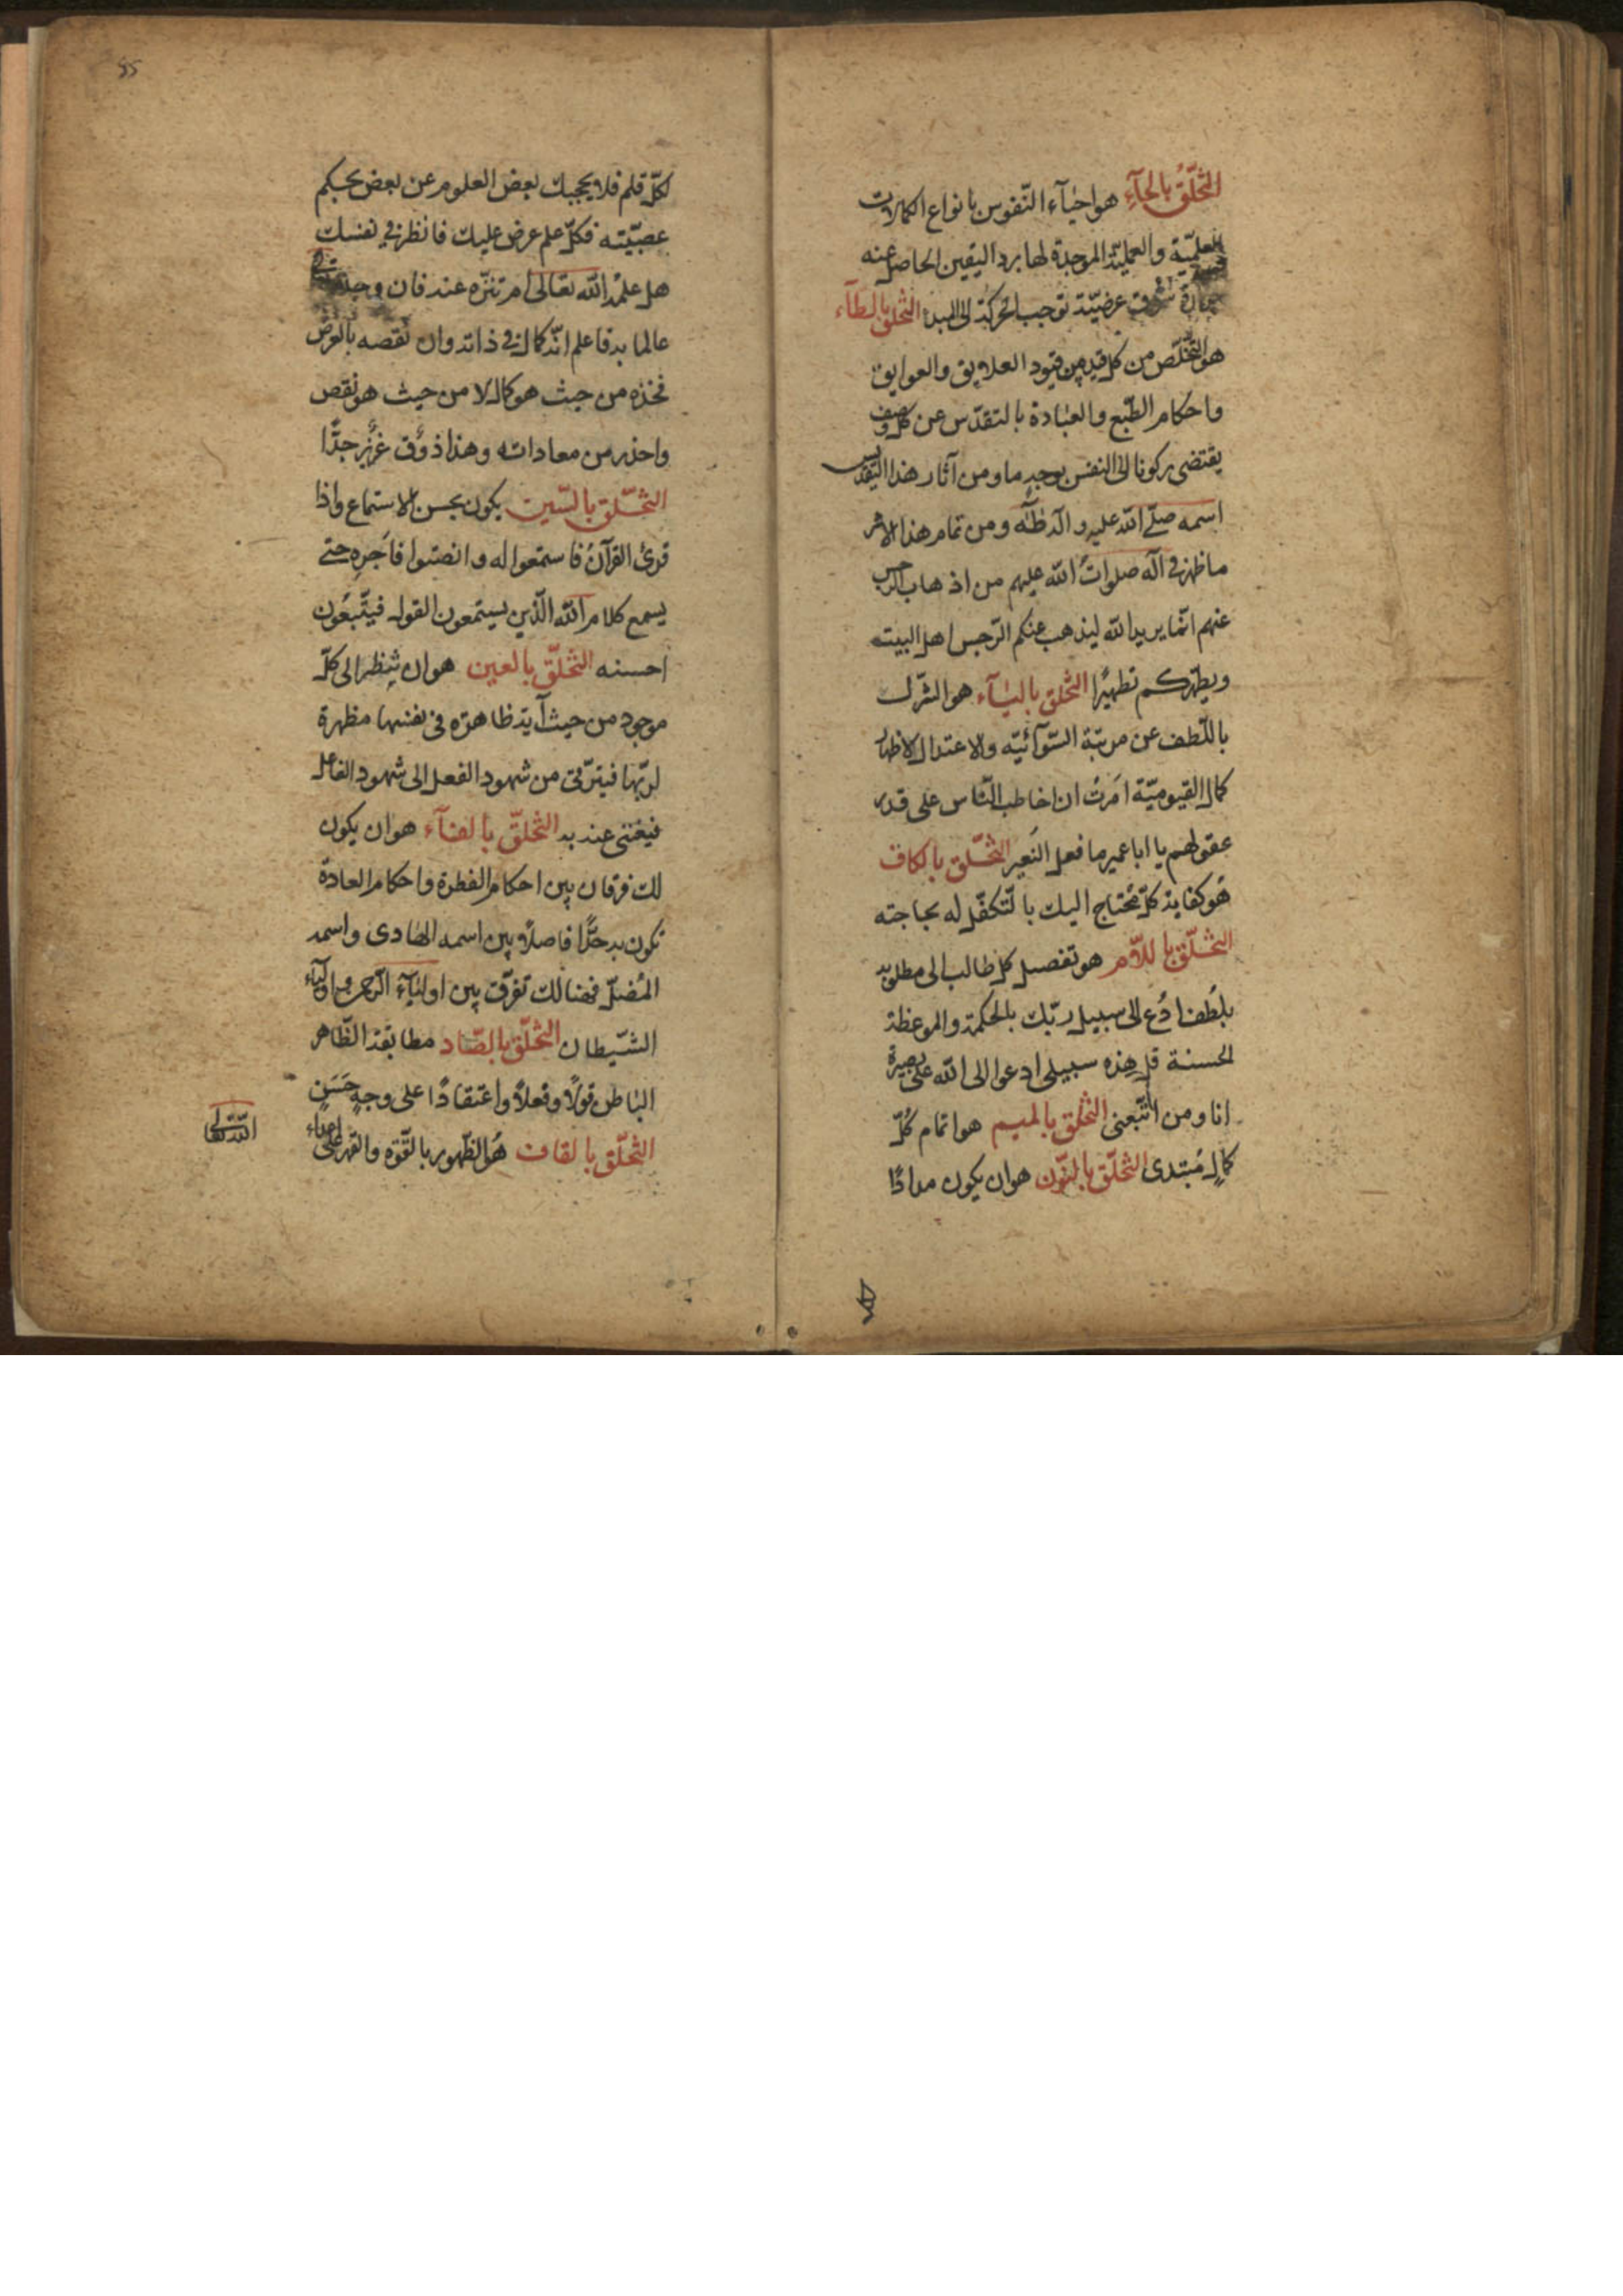 التخلّقُ بالحآءِ هو احيآء النّفوس بانواع الكمالات
العلميّة والعمليّة الموجدة لها برد اليقين الحاصل عنه
حرارة شوق عرضيّة توجب الحركة الى المبدا التخلّق بالطآء
هو التخلّص من كل قيد من قيود العلايق والعوايق
واحكام الطّبع والعادة بالتقدّس عن كل وصف
يقتضى ركونا الى النفس بوجه ما ومن آثار هذا التقدّس
اسمه صلّى الله عليه وآله طٰه ومن تمام هذا الاثر
ما ظهر فى آله صلواتُ الله عليهم من اذهاب الرجس
عنهم انّما يريد الله ليذهب عنكم الرّجس اهل البيت
ويطهّركم تطهيًرا التخلق باليآء هو التنزّل
باللّطف عن مرتبة السّوآئيّه والاعتدال لاظهار
كمال القيوميّة امَرتُ ان اخاطب النّاس على قدر
عقولهم يا ابا عمير ما فعل النَعير التخّلق بالكاف
هُو كفاية كلّ مُحتاج اليك بالتّكفّل له بحاجته
التخّلق باللاّم هو تفصيل كل طالب الى مطلوبه
بلطُف ادُع الى سبيل ربّك بالحكمة والموعظة
الحسنة قل هِذه سبيلى ادعوا الى الله على بصيرة
انا ومن اتّبعنى التخلق بالميم هو اتمام كُلّ
كمالٍ مُبتدى التخلّق بالنّون هو ان يكون مدادًا
لكلّ قلم فلا يحجبك بعض العلوم عن بعض بحكم
عصبيّته فكلّ علم عرض عليك فانظر فى نفسك
هل علمهُ الله تعالى ام تنزّه عنه فان وجدته
عالما به فاعلم انّه كمال فى ذاته وان نقصه بالعرض
فخذه من حيث هو كمال لا من حيث هو نقص
واحذر من معاداته وهذا ذوُق عزُيز جدًّا
التخّلق بالسّين يكون بحسن الاستماع واذا
قرئ القرآنُ فاستمعوا له وانصتوا فاَجره حتى
يسمع كلام الله الّذين يستمعون القول فيتّبعُون
احسنه التخلّق بالعين هو ان ينظر الى كلّ
موجود من حيث آيته ظاهرة فى نفسها مظهرة
لربّها فيترّقى من شهود الفعل الى شهود الفاعل
فيغنى عنه به التخلّق بالفآء هو ان يكون
لك فرقان بين احكام الفطرة واحكام العادة
تكون به حدًّا فاصلاً بين اسمه الهادى واسمه
المُضلّ فهنالك تفرّق بين اوليآء الرّحمن واوليآء
الشيّطان التخلّق بالصّاد مطابقة الظّاهر
الباطن قولاً وفعلاً واعتقادًا على وجهٍ حَسَنٍ
التخّلق بالقاف هُو الظّهور بالقّوة والقهر على اعداء
الله تعالى